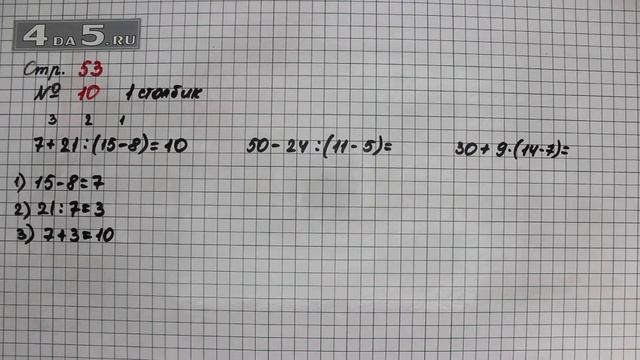 4DA5.RU
Стр. 53
№ 10 1 столбик
3 2 1
7+21:(15-8)=10 50-24:(11-5)= 30+9·(14-7)=
1) 15-8=7
2) 21:7=3
3) 7+3=10